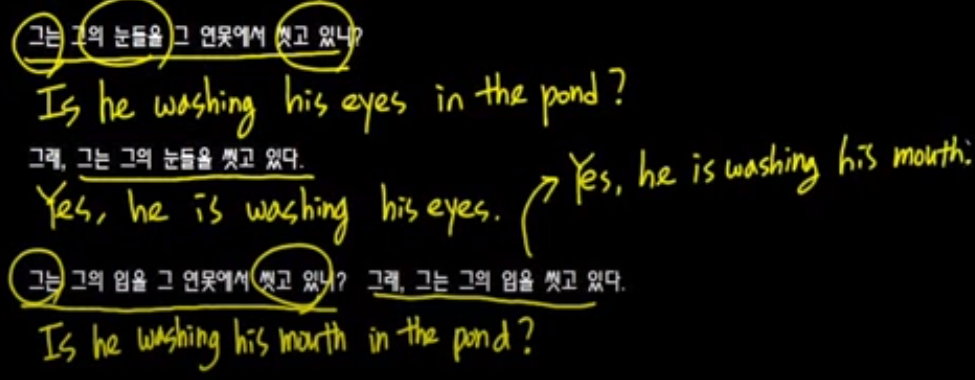 그는 그의 눈들을 그 연못에서 씻고 있니?
Is he washing his eyes in the pond?
그래, 그는 그의 눈들을 씻고 있다.
Yes, he is washing his eyes.
Yes, he is washing his mouth.
그는 그의 입을 그 연못에서 씻고 있니? 그래, 그는 그의 입을 씻고 있다.
Is he washing his mouth in the pond?